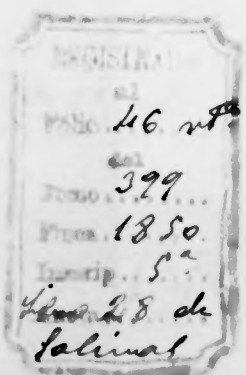 REGISTRADO
al
Folio 46 vto
del
Tomo 399
Finca 1850
Inscrip. 5ª
28 de
Salinas